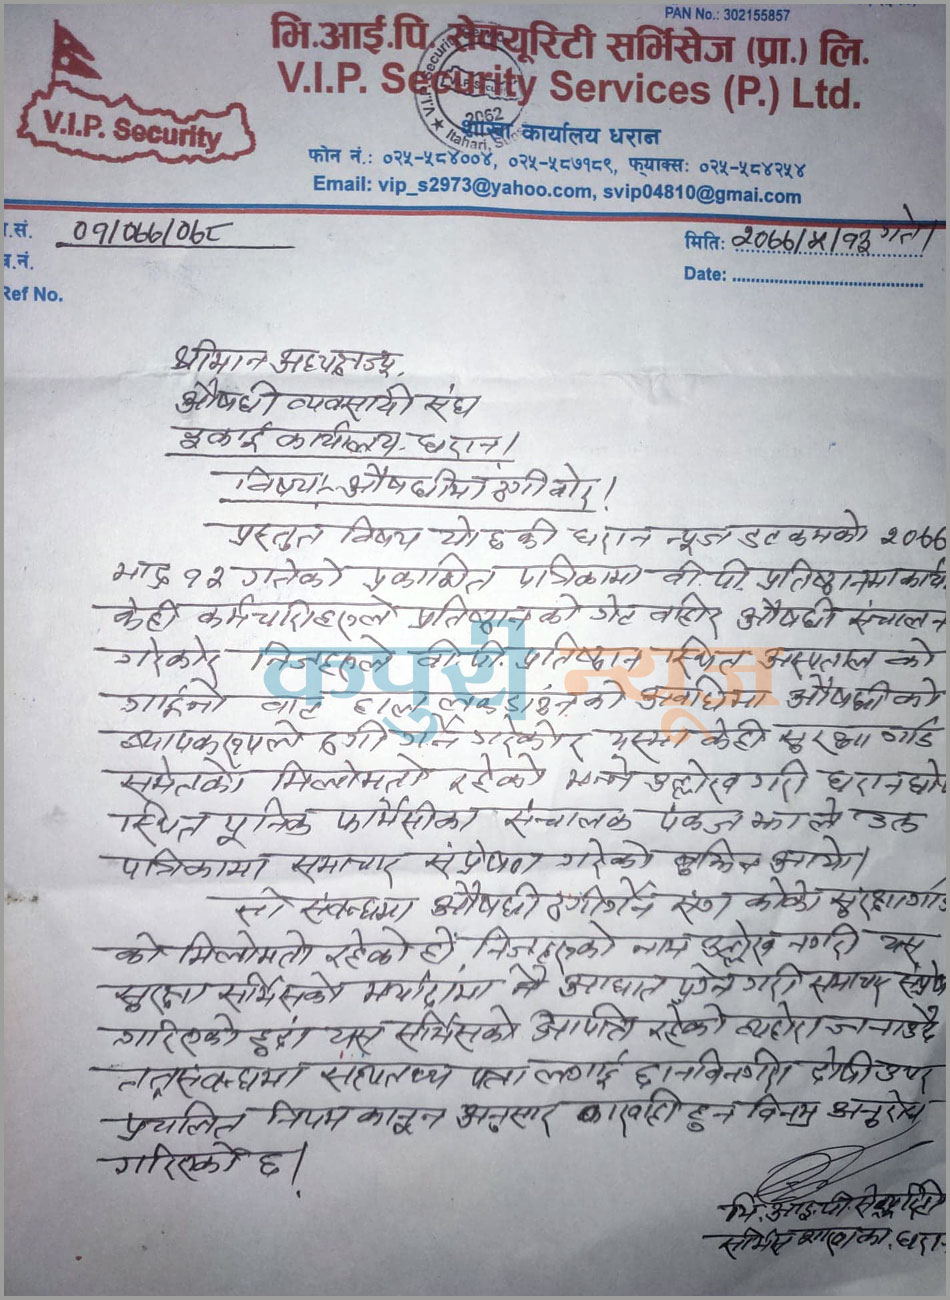 PAN No.: 302155857
भि.आई.पि. सेक्यूरिटी सर्भिसेज (प्रा.) लि.
V.I.P. Security Services (P.) Ltd.
V.I.P. Security
2062
Itahari, Sun
शाखा कार्यालय धरान
फोन नं.: ०२५-५८४००४, ०२५-५८७१८९, फ्याक्स: ०२५-५८४२५४
Email: vip_s2973@yahoo.com, svip04810@gmai.com
.सं. ०१/०७७/०७८
मितिः २०७७/५/१३ गते।
च.नं.
Date:
Ref No.
श्रीमान अध्यक्षज्यू,
औषधी व्यवसायी संघ
इकाई कार्यालय धरान।
विषयः- औषधीमा ठगी बारे।
प्रस्तुत विषय यो छ की धरान न्यूज डट कमको २०७७
भाद्र १२ गतेको प्रकाशित पत्रिकामा बी.पी. प्रतिष्ठानमा कार्य
केही कर्मचारीहरुले प्रतिष्ठानको गेट बाहिर औषधी संचालन
गरेको र निजहरुले बी.पी. प्रतिष्ठान स्थित अस्पताल को
गाईनो वार्ड हाल लकडाउनको अवधिमा औषधीको
व्यापकरुपले ठगी गर्ने गरेको र यसमा केही सुरक्षा गार्ड
समेतको मिलोमतो रहेको भन्ने उल्लेख गरी धरान घोपा
स्थित फार्मेसीका संचालक पंकज झा ले उक्त
पत्रिकामा समाचार संप्रेषण गरेको बुझिन आयो।
सो सम्बन्धमा औषधी ठगी गर्ने संग को को सुरक्षागार्ड
को मिलोमतो रहेको हो, निजहरुको नाम उल्लेख नगरी यस
सुरक्षा सर्भिसको मर्यादामा नै आघात पुग्ने गरी समाचार संप्रेषण
गरिएको हुंदा यस सर्भिसको आपत्ति रहेको व्यहोरा जनाउदै
तत् सम्बन्धमा सत्यतथ्य पत्ता लगाई छानविन गरी दोषी उपर
प्रचलित नियम कानून अनुसार कारवाही हुन विनम्र अनुरोध
गरिएको छ।
कपुरी न्यूज
भि.आई.पी. सेक्यूरिटी
सर्भिस शाखा का. धरान